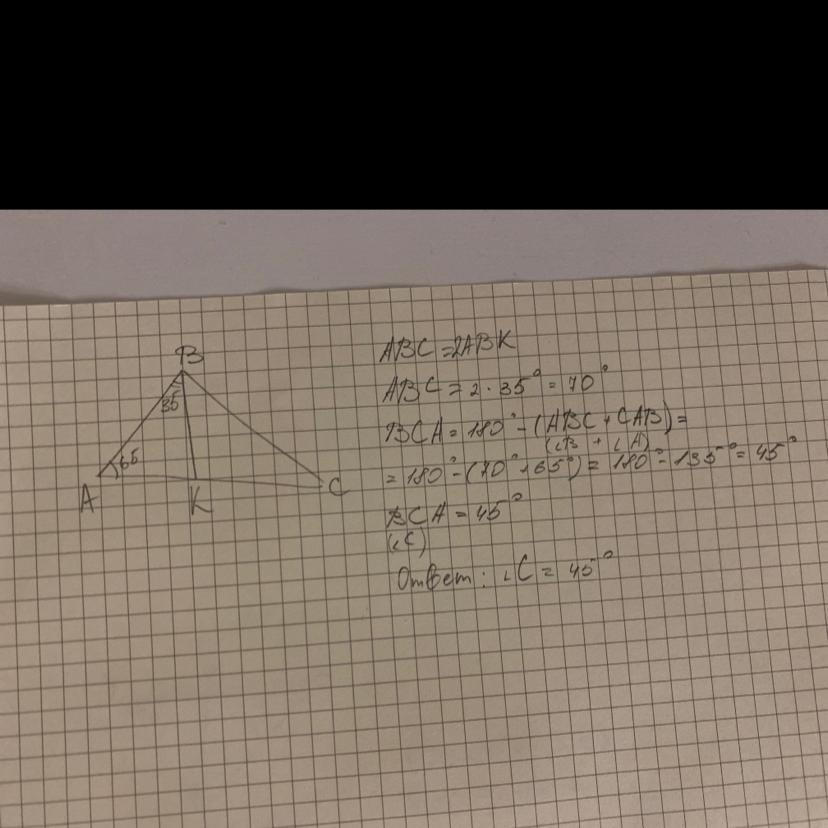 B
35
65
A
K
C
ABC = 2ABK
ABC = 2 · 35° = 70°
BCA = 180° - (ABC + CAB) =
(∠B + ∠A)
= 180° - (70° + 65°) = 180° - 135° = 45°
BCA = 45°
(∠C)
Ответ: ∠C = 45°